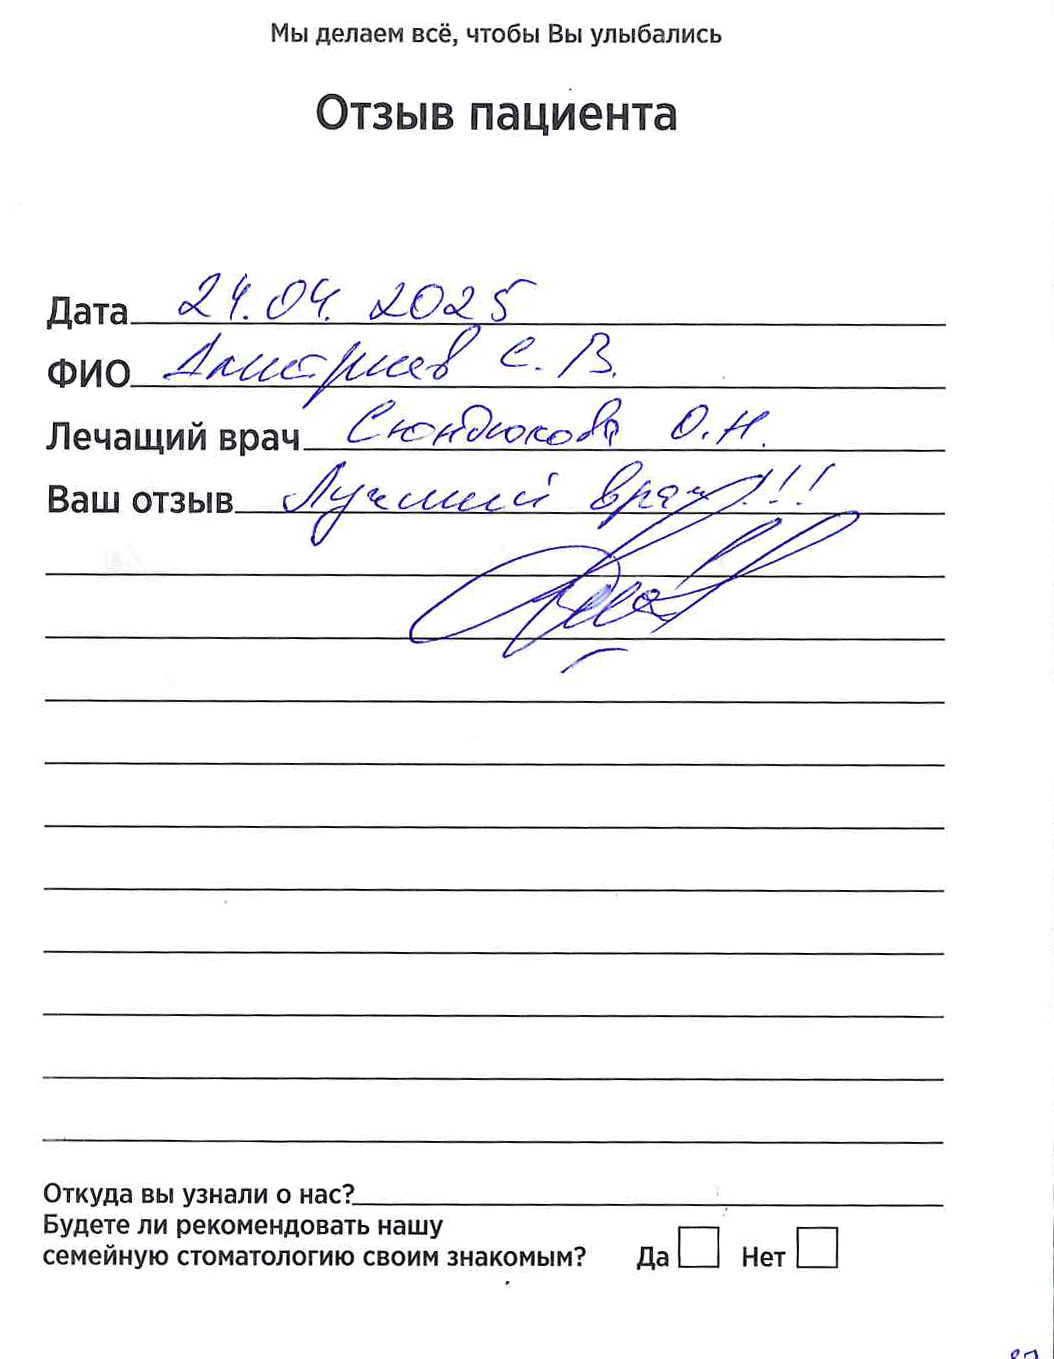 Мы делаем всё, чтобы Вы улыбались
Отзыв пациента
Дата 24.04.2025
ФИО Дмитриев С. В.
Лечащий врач Сюндюкова О.Н.
Ваш отзыв Лучший врач!!!
Откуда вы узнали о нас?
Будете ли рекомендовать нашу
семейную стоматологию своим знакомым? Да Нет